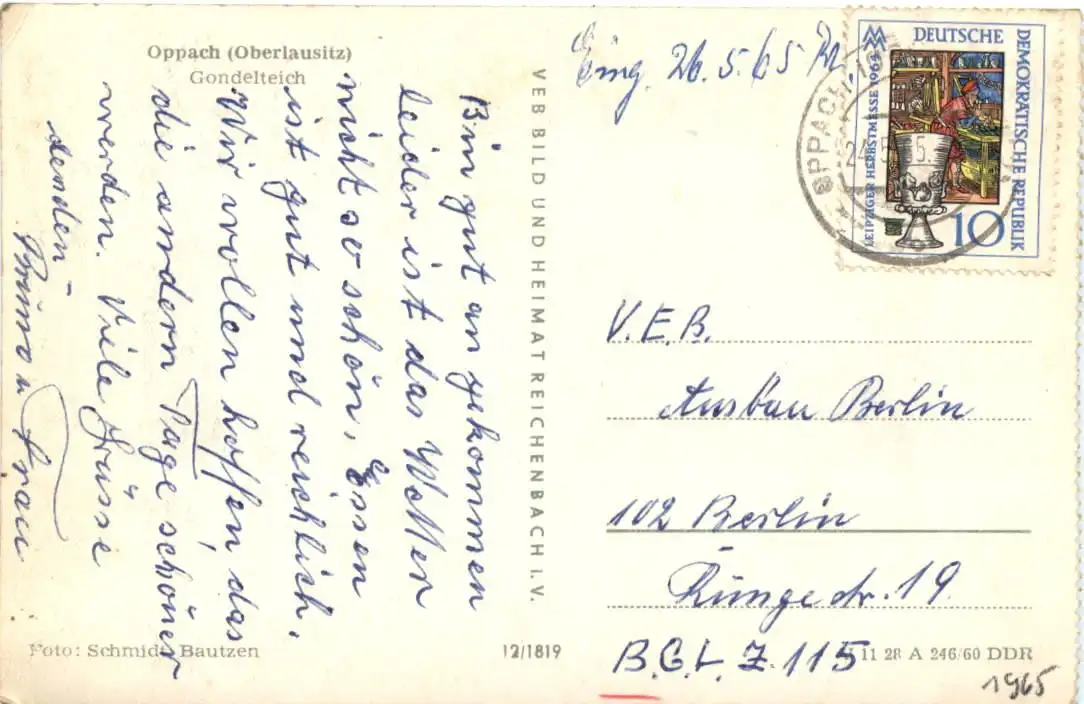 Oppach (Oberlausitz)
Gondelteich
Bin gut an gekommen
leider ist das Wetter
nicht so schön, Essen
ist gut und reichlich.
Wir wollen hoffen, das
die andern Tage schöner
werden. Viele Grüsse
senden –
Bruno u Frau
VEB BILD UND HEIMAT REICHENBACH I.V.
Foto: Schmidt, Bautzen
12/1819
Eing. 26.5.65
DEUTSCHE
DEMOKRATISCHE REPUBLIK
LEIPZIGER HERBSTMESSE 1963
10
OPPACH
V.E.B.
Ausbau Berlin
102 Berlin
Rungestr. 19
B.G.L. Z. 115
11 28 A 246/60 DDR
1965